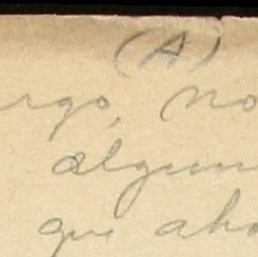 (A)
rgo, no
algun
que aho